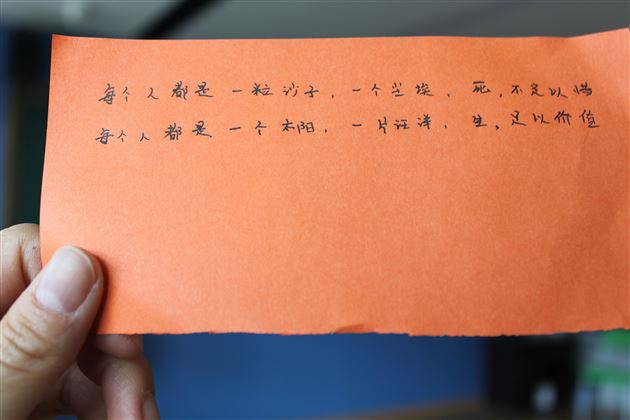 每个人都是一粒沙子，一个尘埃，死，不足以惜
每个人都是一个太阳，一片汪洋，生，足以价值